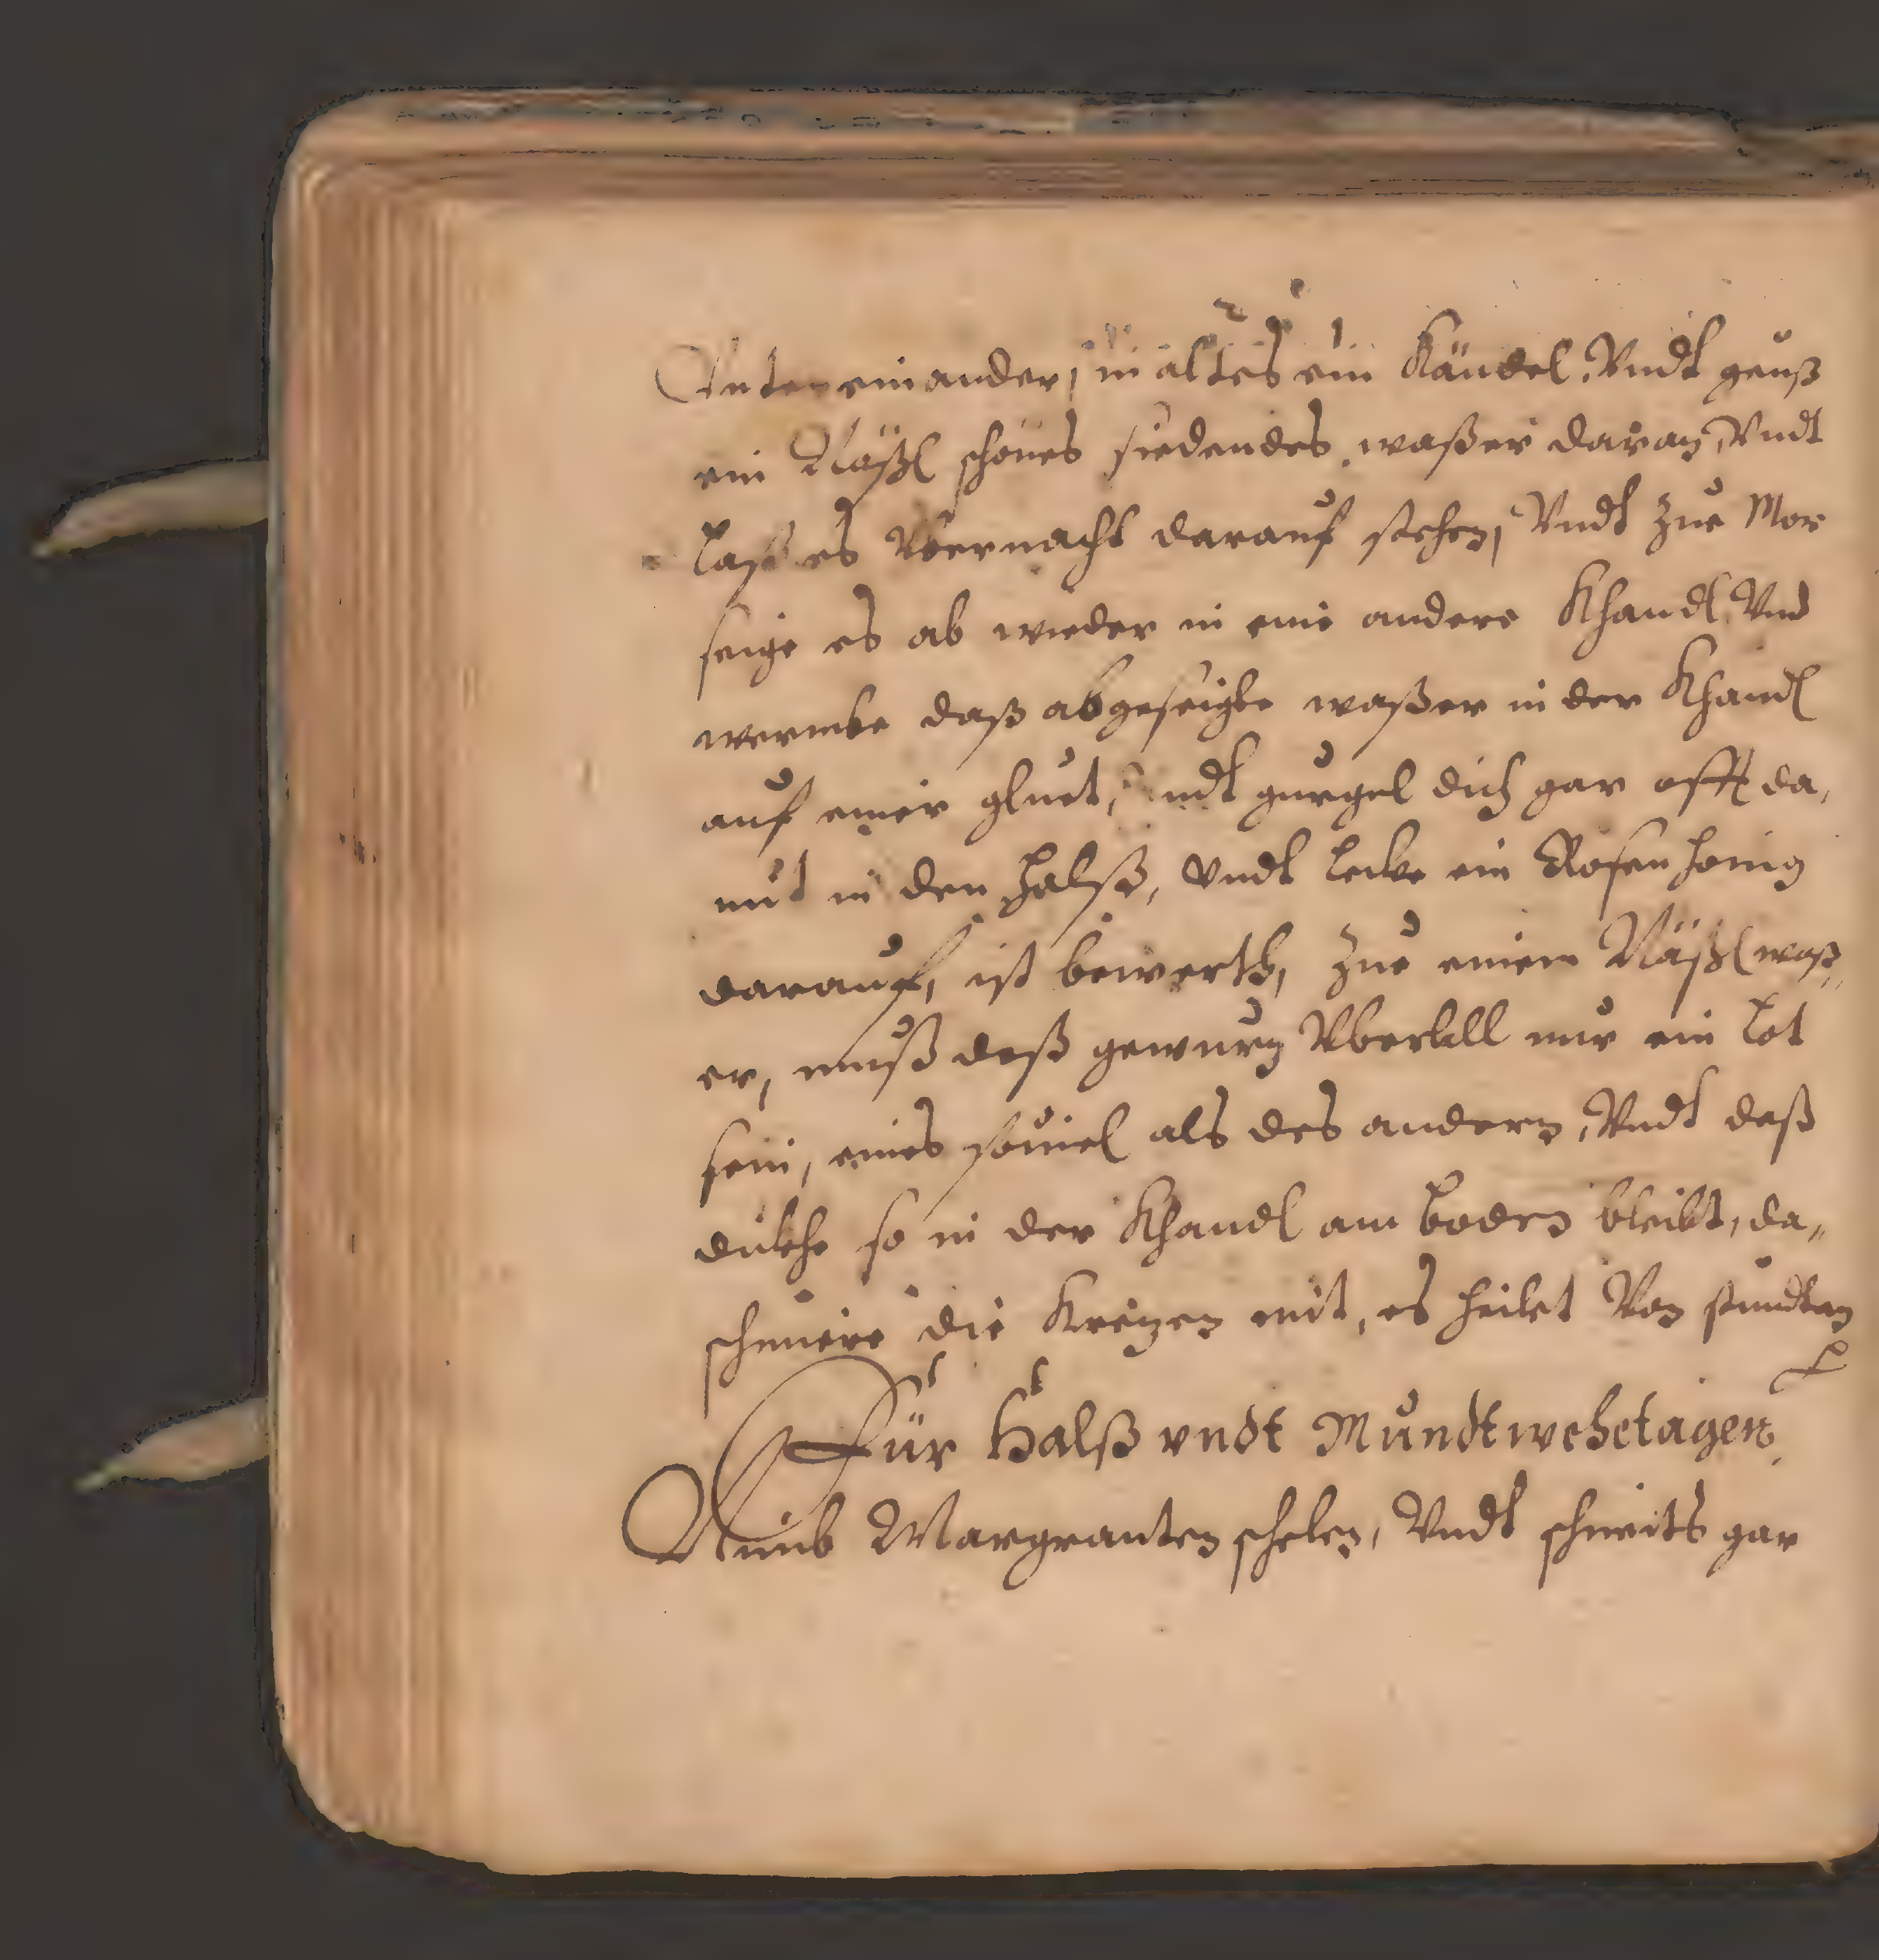 Unter einander, in altes ein Kändel, Vndt geuß
ein Näßl schönes siedendes waßer daran, Vndt
laß es Vbernacht darauf stehen, Vndt zue Mor
seige es ab wieder in eine andere Khandl, Vnd
wermbe daß abgeseigte waßer in der Khandl
auf einer gluet, Vndt gurgel dich gar offt da,
mit in den Halß, Vndt lecke ein Rosenhonig
darauf, ist bewerth, Zue einem Näßl waß„
er, muß daß gewurz Vberall nur ein lot
sein, eines souiel als des andern, Vndt daß
dickhe so in der Khandl am boden bleibt, da„
schmiere die Kreizen mit, es heilet Von stundtan
Für Halß vndt Mundtwehetagen
Nimb Margranten schelen, Vndt schneits gar